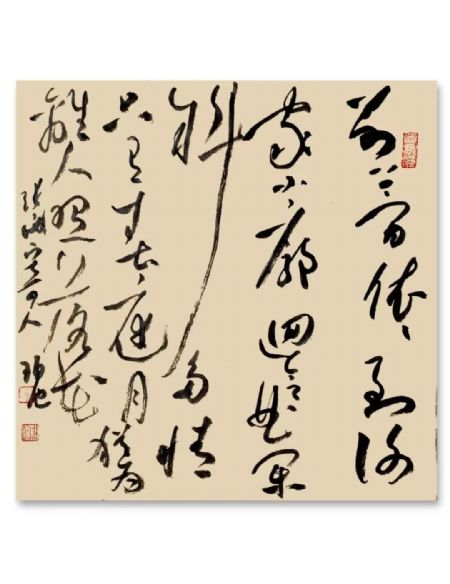 别梦依依到谢
家小廊迴合曲阑
斜多情
只有春庭月猶为
離人照落花
張泌寄人